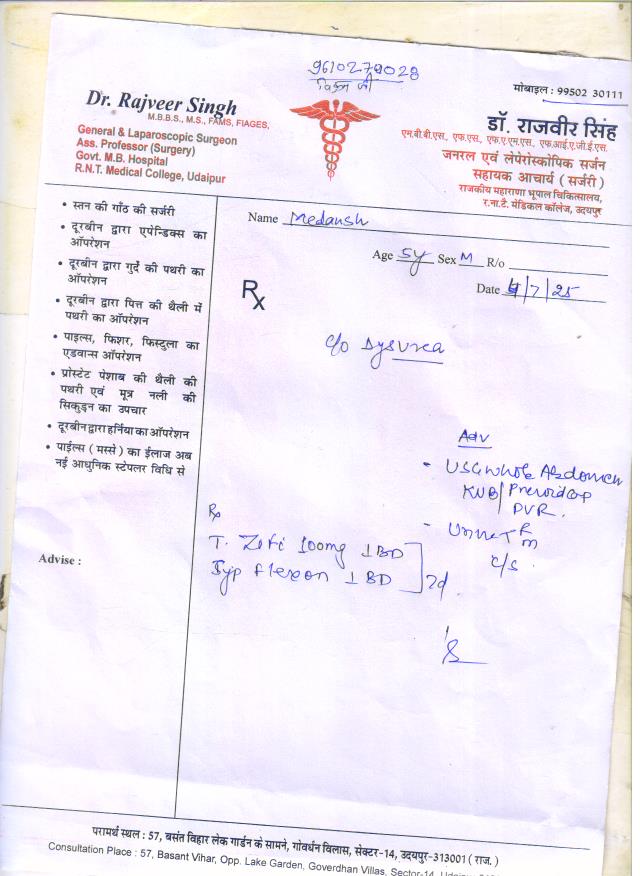 9610279028
मोबाइल : 99502 30111
Dr. Rajveer Singh
M.B.B.S., M.S., FAMS, FIAGES,
General & Laparoscopic Surgeon
Ass. Professor (Surgery)
Govt. M.B. Hospital
R.N.T. Medical College, Udaipur
डॉ. राजवीर सिंह
एम.बी.बी.एस., एफ.एस., एफ.ए.एम.एस., एफ.आई.ए.जी.ई.एस.
जनरल एवं लेपेरोस्कोपिक सर्जन
सहायक आचार्य (सर्जरी)
राजकीय महाराणा भूपाल चिकित्सालय,
र.ना.टै. मेडिकल कॉलेज, उदयपुर
• स्तन की गाँठ की सर्जरी
• दूरबीन द्वारा एपेन्डिक्स का
ऑपरेशन
• दूरबीन द्वारा गुर्दे की पथरी का
ऑपरेशन
• दूरबीन द्वारा पित्त की थैली में
पथरी का ऑपरेशन
• पाइल्स, फिशर, फिस्टुला का
एडवान्स ऑपरेशन
• प्रोस्टेट पेशाब की थैली की
पथरी एवं मूत्र नली की
सिकुड़न का उपचार
• दूरबीन द्वारा हर्निया का ऑपरेशन
• पाईल्स ( मस्से ) का ईलाज अब
नई आधुनिक स्टेपलर विधि से
Advise :
Name Medansh
Age 5y Sex M R/o
Date 4/7/25
Rx
c/o Dysurea
Adv
- USG whole Abdomen
KUB/ Prevoid cap
PVR.
- Urine R/m
c/s.
Rx
T. Zifi 100mg 1 BD
Syp flexon 1 BD ] 2d.
परामर्श स्थल : 57, बसंत विहार लेक गार्डन के सामने, गोवर्धन विलास, सेक्टर-14, उदयपुर-313001 ( राज. )
Consultation Place : 57, Basant Vihar, Opp. Lake Garden, Goverdhan Villas, Sector-14, Udaipur